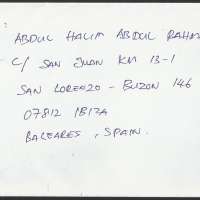 :
ABDUL HALIM ABDUL RAHM
C/ SAN JUAN KM 13-1
SAN LORENZO - BUZON 146
07812 IBIZA
BALEARES, SPAIN.